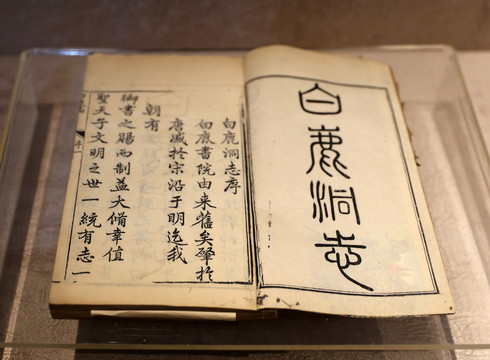 白鹿洞志
白鹿洞志序
白鹿書院由来舊矣肇於
唐盛於宋沿于明迄我
朝有
御書之賜而制益大備幸值
聖天子文明之世一統有志一